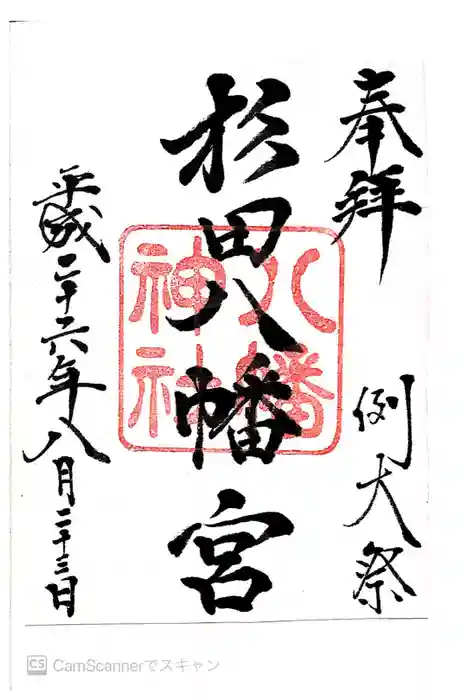 奉拝
例大祭
杉田八幡宮
八幡
神社
平成二十六年八月二十三日
CS CamScannerでスキャン